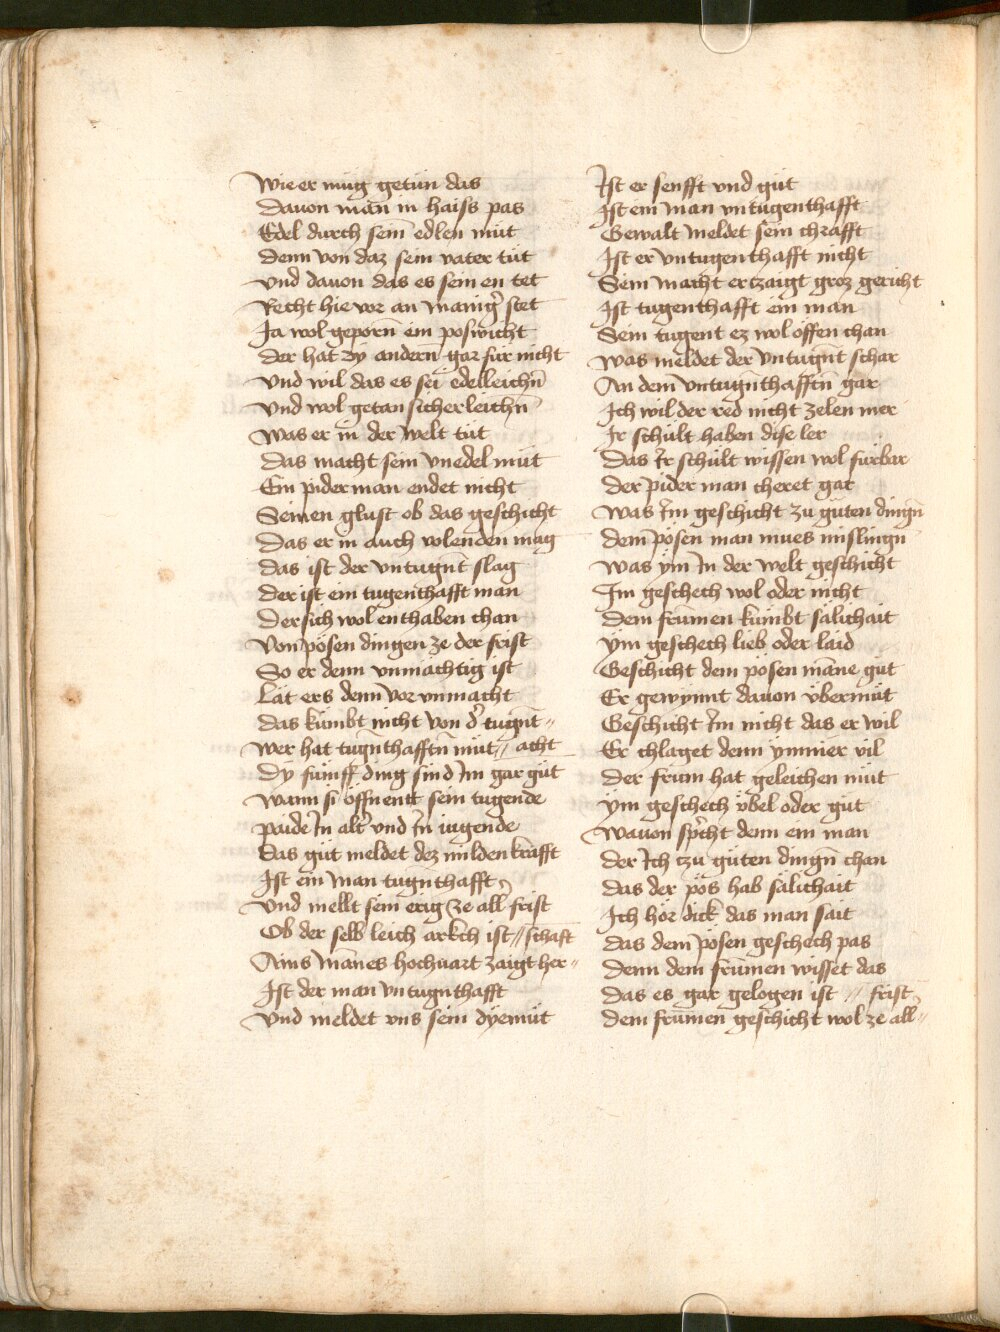 Wie er mug getun das
Dauon man in haiss pas
Edel durch sein edlen mut
Denn von daz sein vater tut
Vnd dauon das es sein en tet
Recht hie vor an manig̉ stet
Ja wol geporn̄ ein poswicht
Der hat dy andern̄ gar fur nicht
Vnd wil das es sei edelleichn̄
Vnd wol getan sicherleichn̄
Was er in der welt tut
Das macht sein vnedel mut
Ein piderman endet nicht
Seinen glust ob das geschicht
Das er in auch volenden mag
Das ist der vntugn̄t slag
Der ist ein tugenthafft man
Der sich wol enthaben chan
Von pösen dingen ze der frist
So er denn vnmächtig ist
Lät ers denn vor vnmacht
Das kumbt nicht von d̉ tugn̄t〃
Wer hat tugn̄thafftn̄ mut〃 acht
Dy fumff ding sind Im gar gut
Wann si öffnentt sein tugende
Paide In alt̉ vnd In iugende
Das gut meldet dez milden krafft
Ist ein man tugn̄thafft
Vnd mellt sein erig ze all̉ frist
Ob der selb leich arkch ist〃schafft
Ains mānes hochuart zaigt her〃
Ist der man vntugn̄thafft
Vnd meldet vns sein dyemut
Ist er senfft vnd gut
Ist ein man vntugenthafft
Gewalt meldet sein chrafft
Ist er vntugenthafft nicht
Sein macht erczaigt groz gericht
Ist tugenthafft ein man
Sein tugent ez wol offen chan
Was meldet der vntugn̄t schar
An dem vntugn̄thafftn̄ gar
Ich wil der red nicht zelen mer
Ir schült haben dise ler
Das Ir schült wissen wol furbar
Der pider man cheret gar
Was Im geschicht zu guten dingn̄
Dem pösen man mues mislingn̄
Was ym In der welt geschicht
Im geschech wol oder nicht
Dem frumen kumbt sälichait
Ym geschech lieb oder laid
Geschicht dem pösen māne gut
Er gewynnt dauon vbermut
Geschicht Im nicht das er wil
Er chlaget denn ymmer vil
Der frum hat geleichen mut
Ym geschech vbel oder gut
Wauon sp̉cht denn ein man
Der Ich czu guten dingn̄ chan
Das der pös hab sälichait
Ich hör dick das man sait
Das dem pösen geschech pas
Denn dem frumen wisset das
Das es gar gelogen ist 〃 frist
Dem frumen geschicht wol ze all̉〃